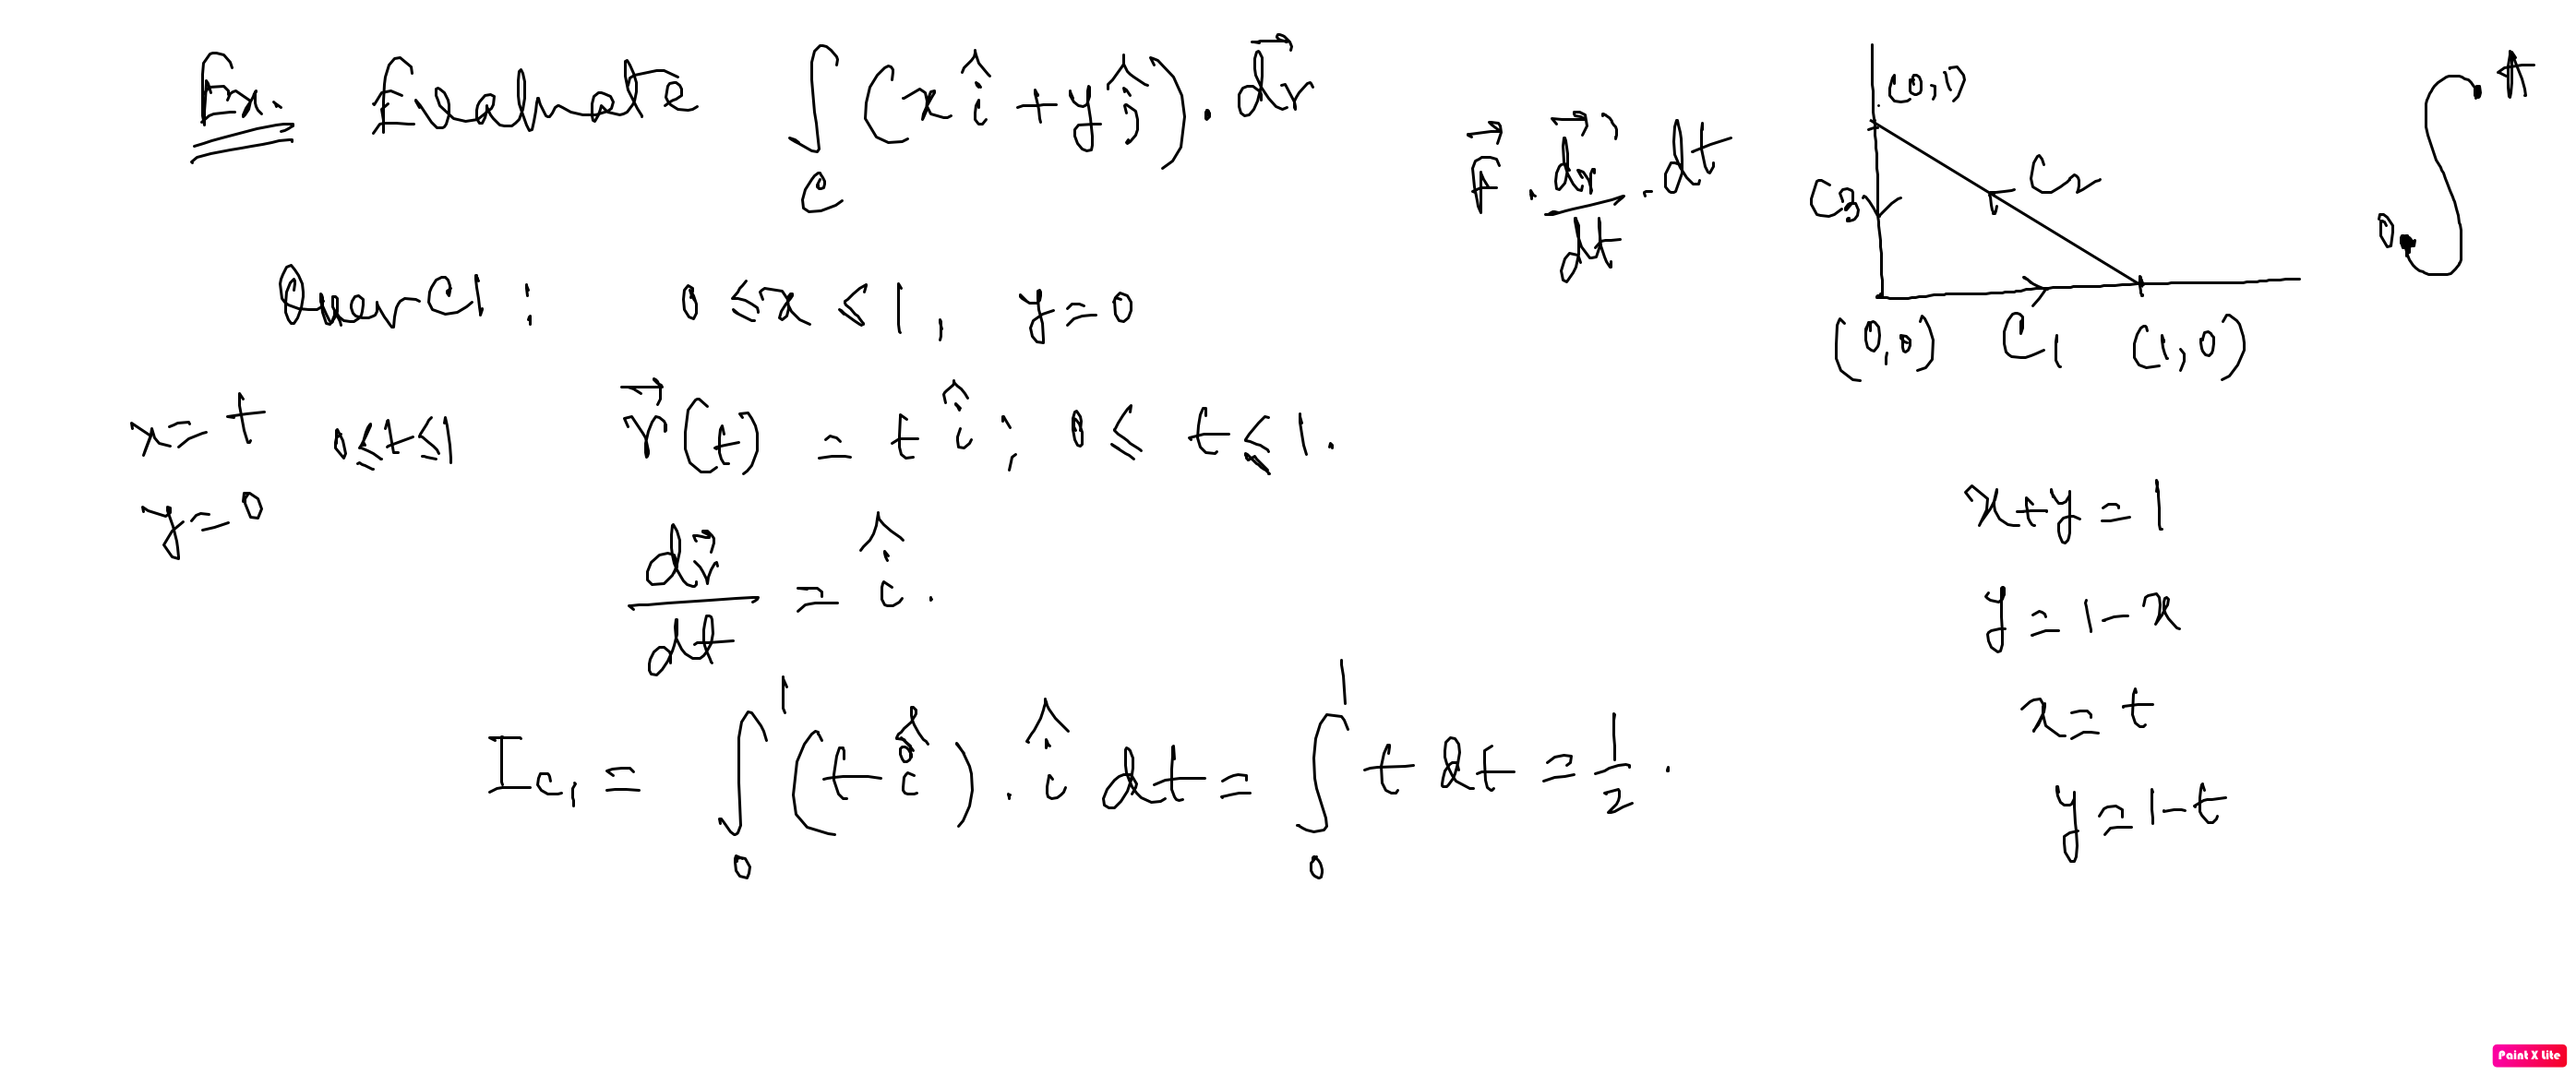 Ex. Evaluate ∫_C (x î + y ĵ) . d\vec{r}
\vec{F} . \frac{d\vec{r}}{dt} . dt
(0,1)
C3
C2
(0,0) C1 (1,0)
A
0
Over C1 : 0 ≤ x ≤ 1, y = 0
x = t 0 ≤ t ≤ 1
y = 0
\vec{r}(t) = t î ; 0 ≤ t ≤ 1.
\frac{d\vec{r}}{dt} = î .
I_{C1} = ∫_0^1 (t î) . î dt = ∫_0^1 t dt = \frac{1}{2} .
x + y = 1
y = 1 - x
x = t
y = 1 - t
Paint X Lite